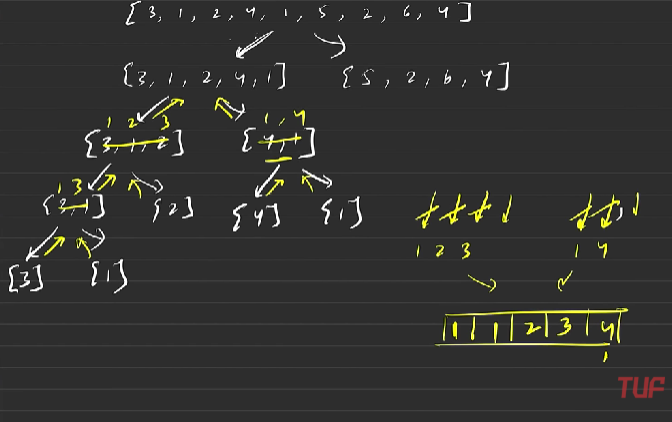 [3, 1, 2, 4, 1, 5, 2, 6, 4]
[3, 1, 2, 4, 1] [5, 2, 6, 4]
1 2 3 1, 4
[3, 1, 2] [4, 1]
1 3
[3, 1] [2] [4] [1]
[3] [1]
1 2 3 1 4
1 1 2 3 4
TUF